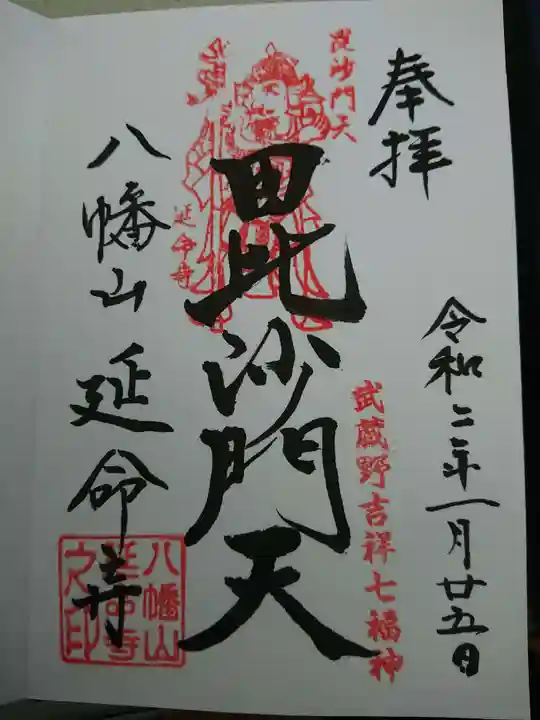 奉拝
令和二年一月廿五日
武蔵野吉祥七福神
毘沙門天
毘沙門天
延命寺
八幡山延命寺
八幡山
延命寺
之印